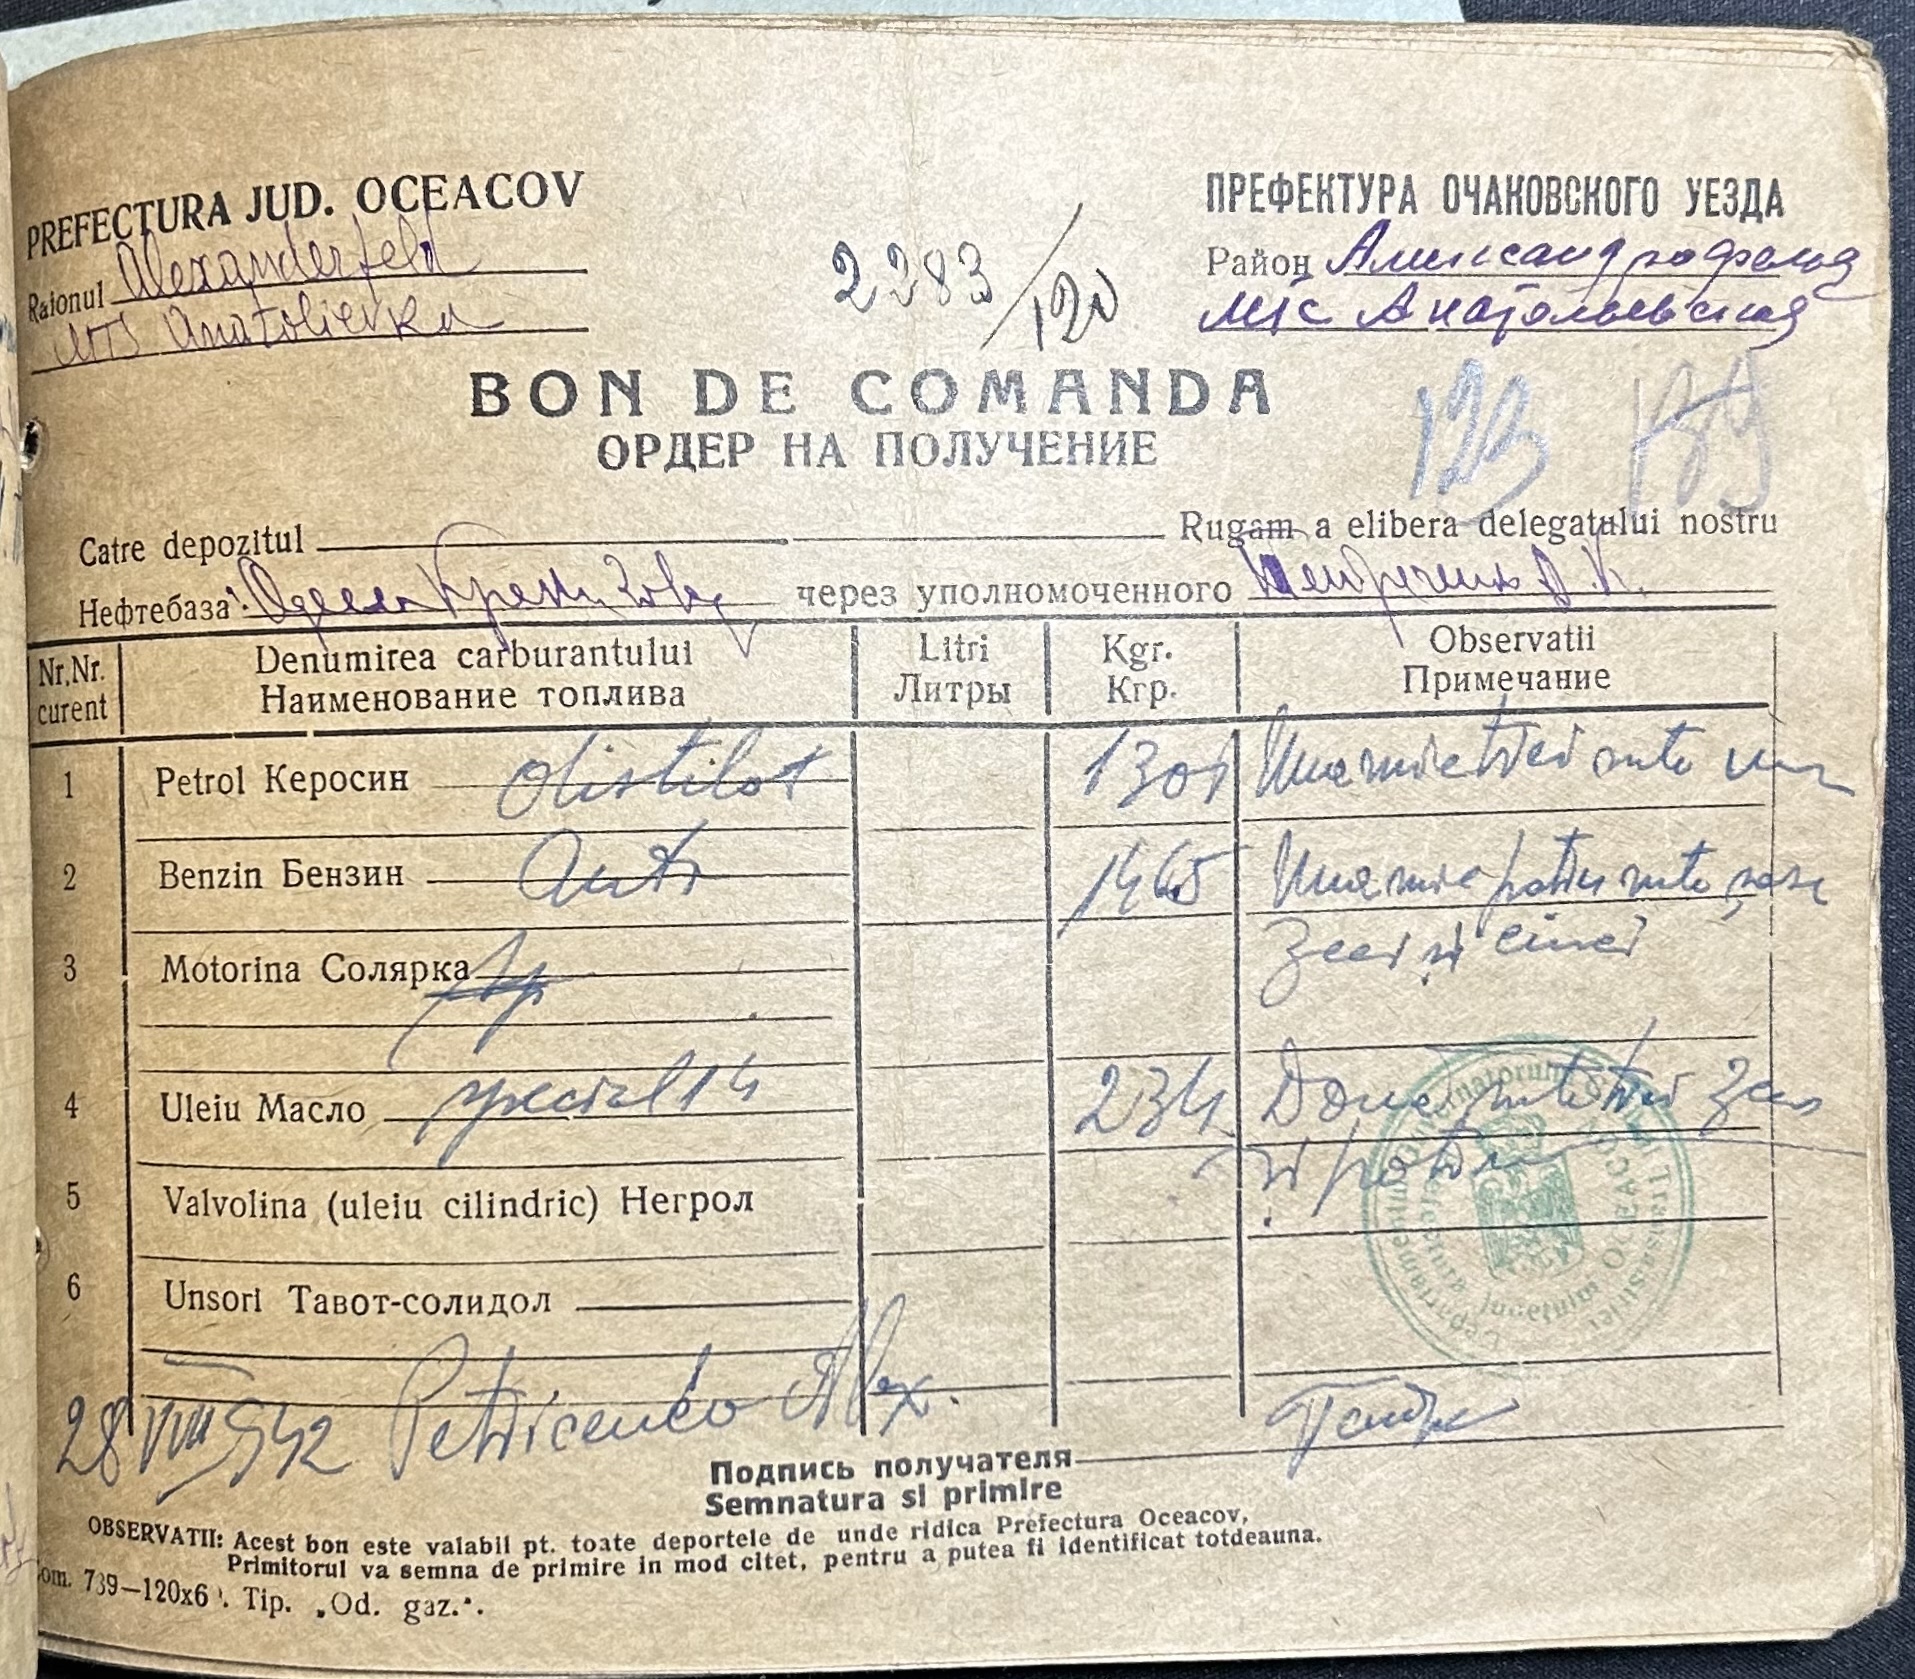 PREFECTURA JUD. OCEACOV
Raionul Alexanderfeld
MTS Anatolievka
2283/120
ПРЕФЕКТУРА ОЧАКОВСКОГО УЕЗДА
Район Александрофельд
МТС Анатольевская
BON DE COMANDA
ОРДЕР НА ПОЛУЧЕНИЕ
Catre depozitul Rugam a elibera delegatului nostru
Нефтебаза через уполномоченного
Nr,Nr. curent
Denumirea carburantului
Наименование топлива
Litri
Литры
Kgr.
Кгр.
Observatii
Примечание
1 Petrol Керосин distilat 1301 Una mie trei sute una
2 Benzin Бензин auto 1465 Una mie patru sute șase
zeci și cinci
3 Motorina Солярка
4 Uleiu Масло special 14 234 Doua sute trei zeci
și patru
5 Valvolina (uleiu cilindric) Негрол
6 Unsori Тавот-солидол
28 VIII 942 Petricenco Alex.
Подпись получателя
Semnatura si primire
OBSERVATII: Acest bon este valabil pt. toate deportele de unde ridica Prefectura Oceacov,
Primitorul va semna de primire in mod citet, pentru a putea fi identificat totdeauna.
om. 739—120x6 . Tip. „Od. gaz.".